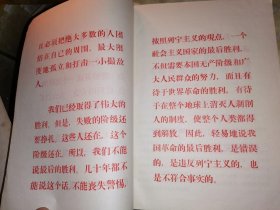 且必须把绝大多数的人团
结在自己的周围，最大限
度地孤立和打击一小撮敌
人。
我们已经取得了伟大的
胜利。但是，失败的阶级还
要挣扎。这些人还在，这个
阶级还在。所以，我们不能
说最后的胜利。几十年都不
能说这个话。不能丧失警惕。
按照列宁主义的观点，一个
社会主义国家的最后胜利，
不但需要本国无产阶级和广
大人民群众的努力，而且有
待于世界革命的胜利，有待
于在整个地球上消灭人剥削
人的制度，使整个人类都得
到解放。因此，轻易地说我
国革命的最后胜利，是错误
的，是违反列宁主义的，也
是不符合事实的。